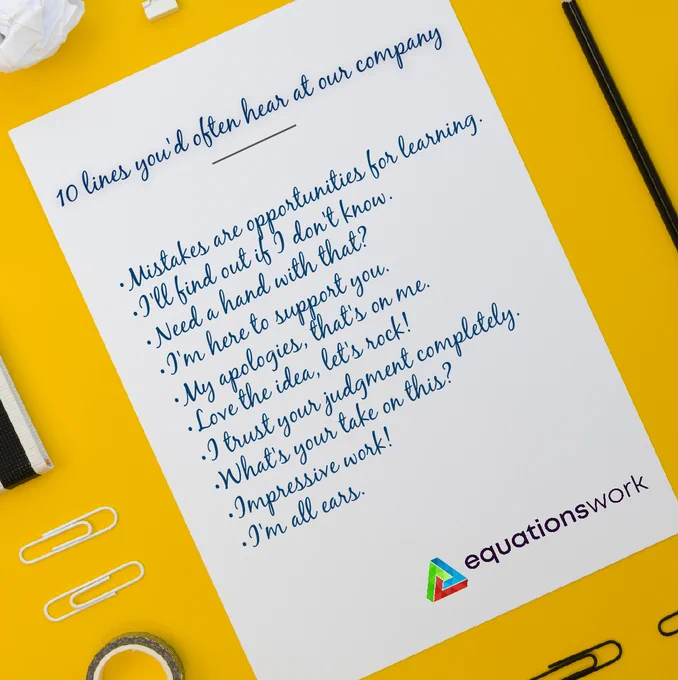 10 lines you'd often hear at our company
• Mistakes are opportunities for learning.
• I'll find out if I don't know.
• Need a hand with that?
• I'm here to support you.
• My apologies, that's on me.
• Love the idea, let's rock!
• I trust your judgment completely.
• What's your take on this?
• Impressive work!
• I'm all ears.
equationswork